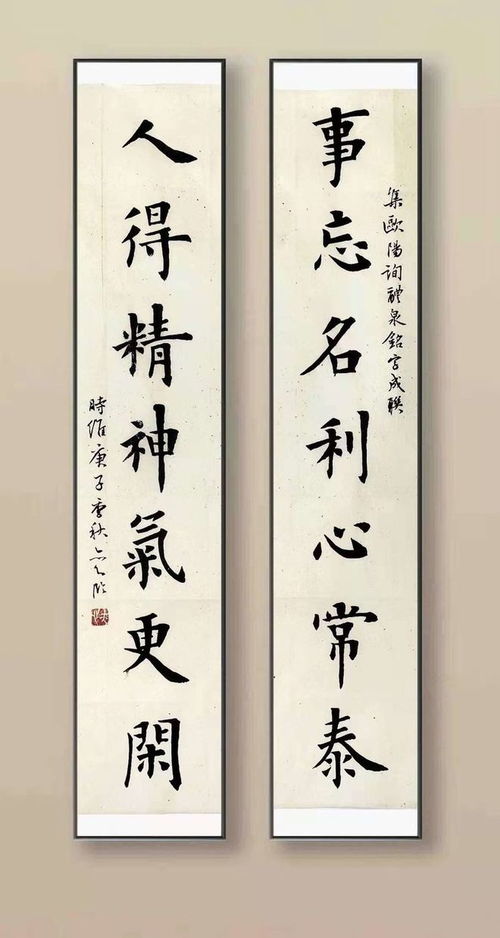 事忘名利心常泰
集歐陽詢醴泉銘字成聯
人得精神氣更閑
時維庚子季秋